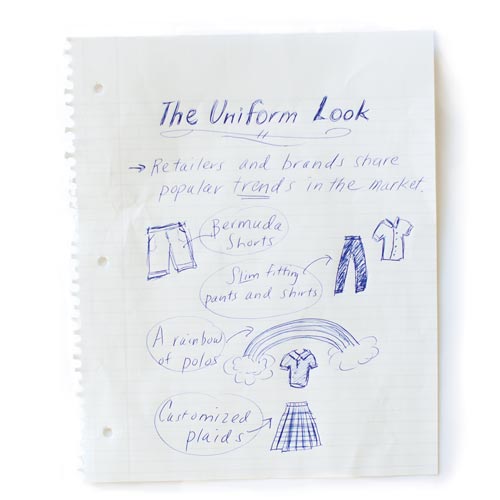 The Uniform Look
→ Retailers and brands share
popular trends in the market.
Bermuda
Shorts
Slim fitting
pants and shirts
A rainbow
of polos
Customized
plaids